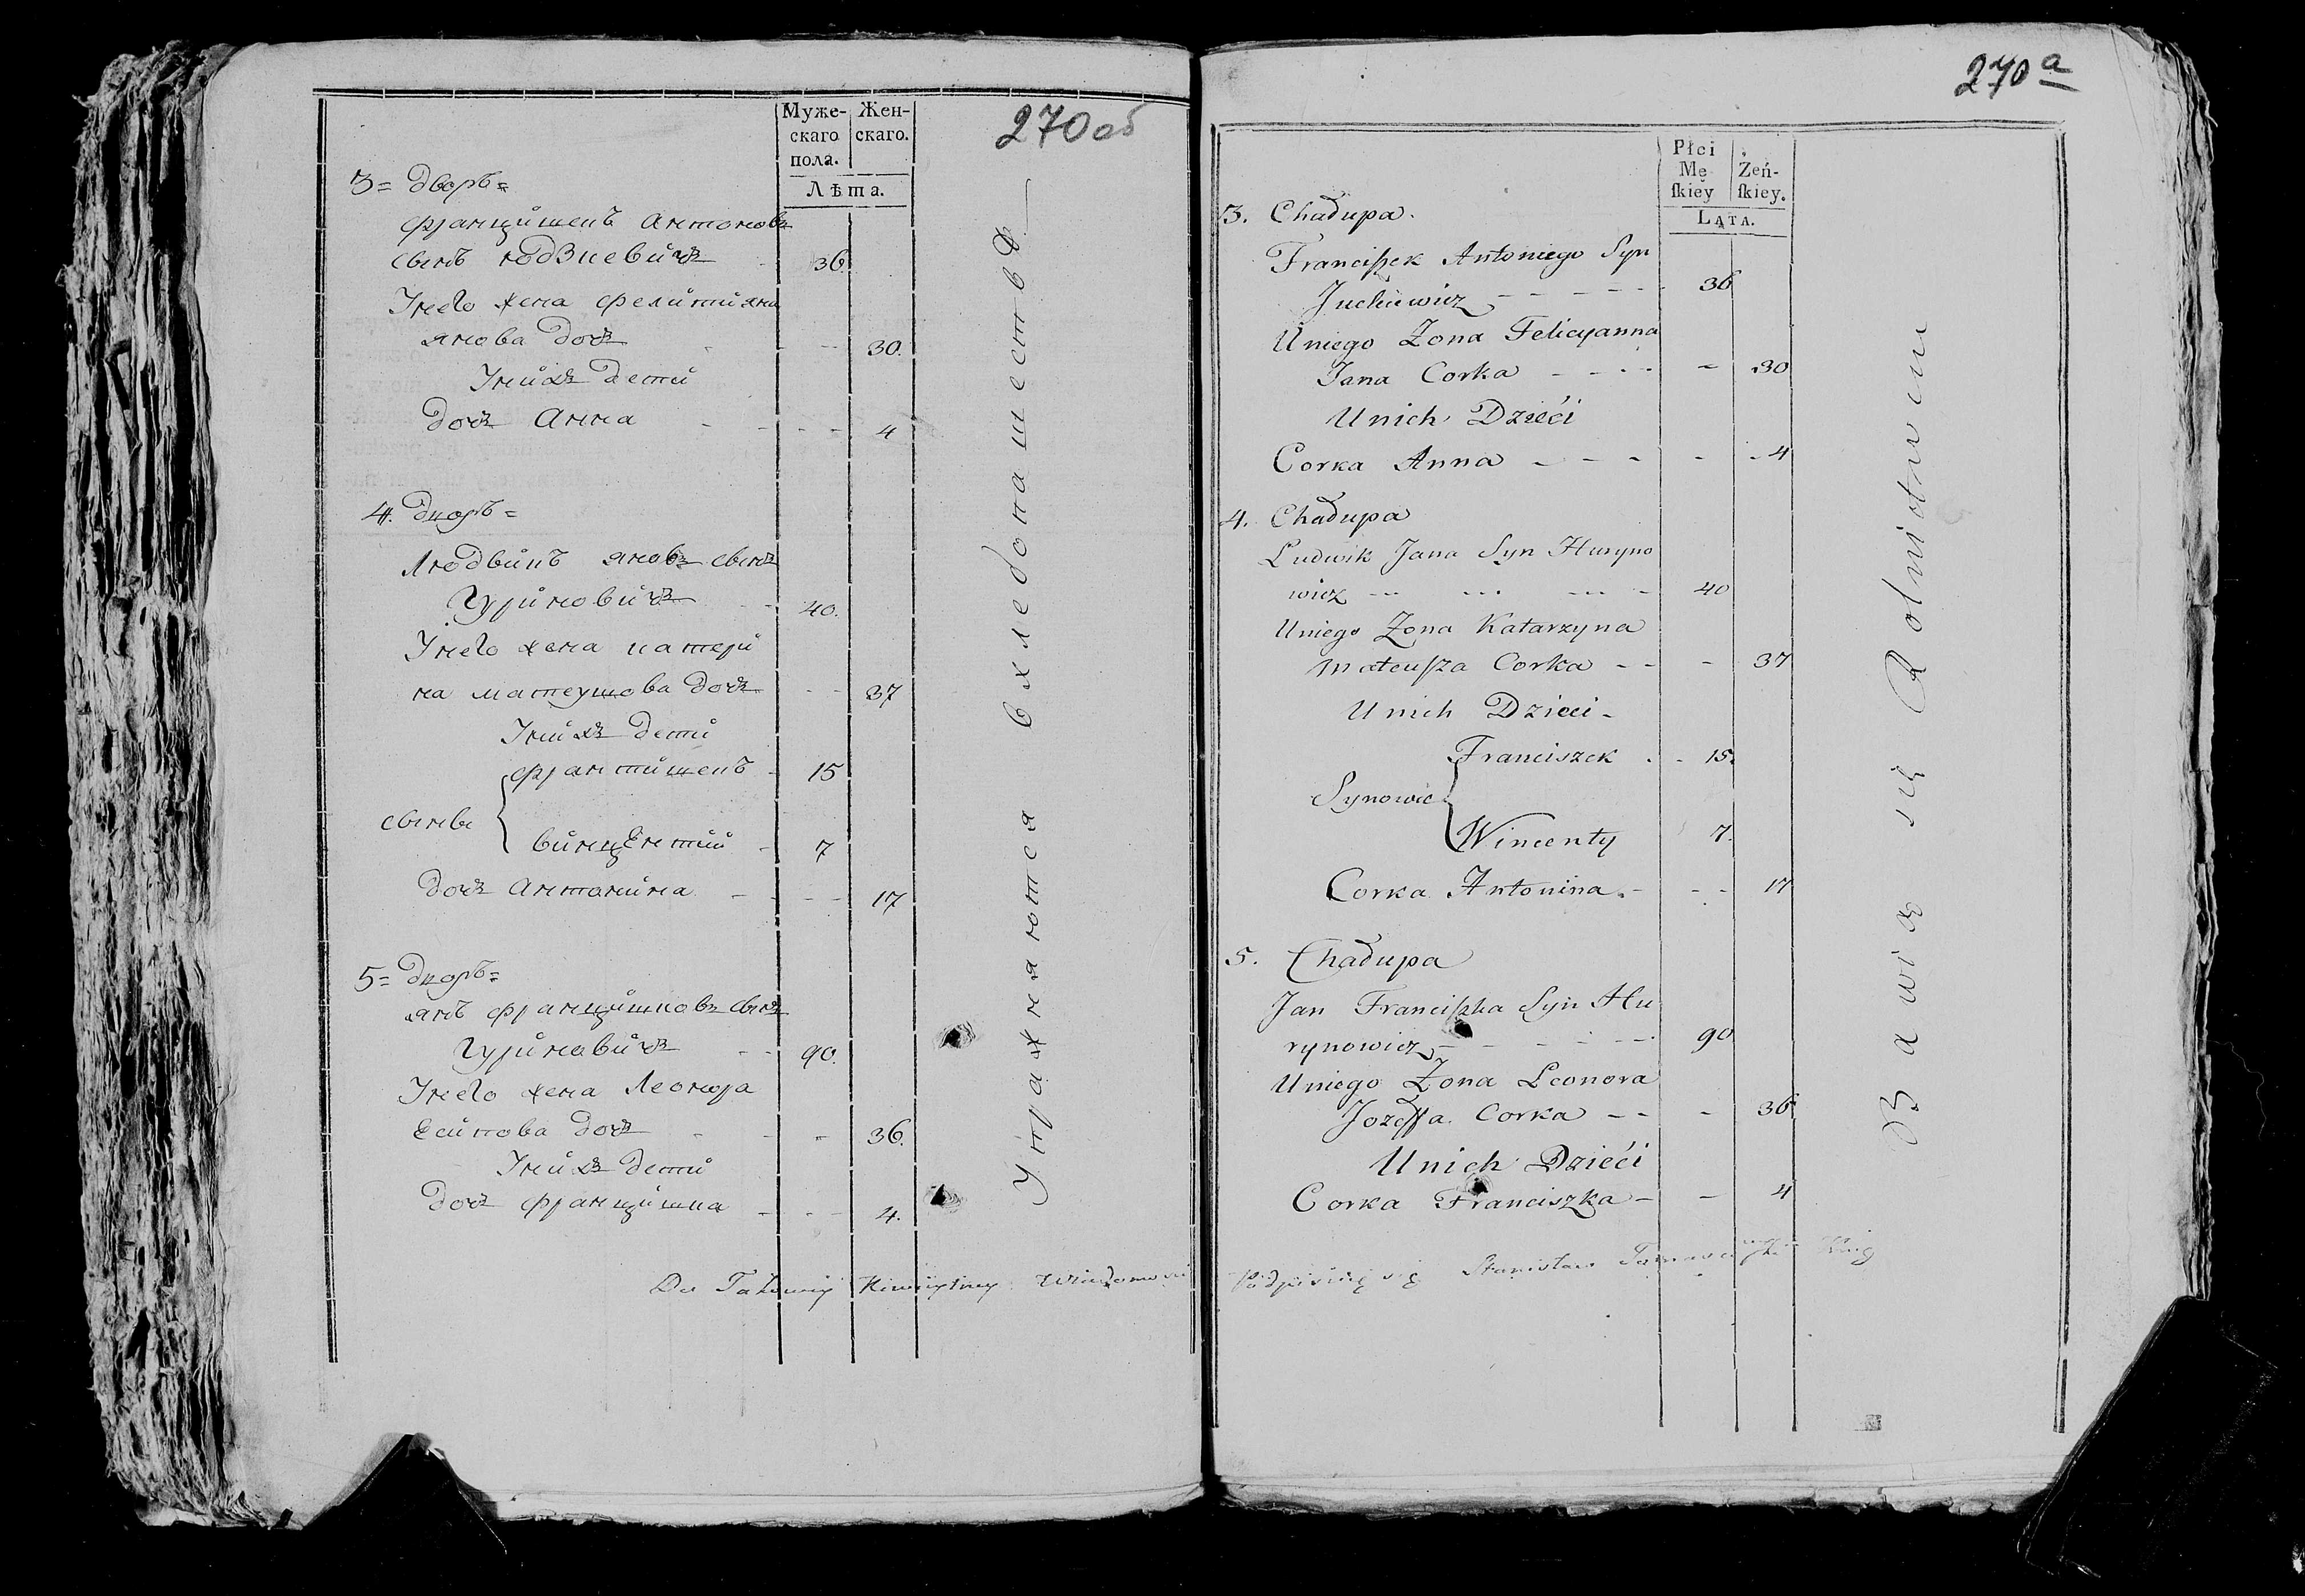 270 об
Муже-
скаго
пола.
Жен-
скаго.
Лѣта.
3= дворъ=
францишекъ антоновъ
сынъ юдзкевичъ 36
Унего жена фелитияна
янова дочь 30.
Унихъ дети
дочь анна 4
4. дворъ=
Людвикъ яновъ сынъ
гуриновичъ 40.
Унего жена катери
на матеушова дочь 37
Унихъ дети
францишекъ 15
сыновья
винцентий 7
дочь антонина 17
5= дворъ=
янъ францишковъ сынъ
гуриновичъ 90.
Унего жена Леонора
Есипова дочь 36.
Унихъ дети
дочь францишка 4.
Упражняются вхлебопашестве
270 а
Płci
Mę
ſkiey
Żeń-
ſkiey.
Ląta.
3. Chałupa.
Franciszek Antoniego Syn
Juckiewicz 36
Uniego Żona Felicyanna
Jana Corka 30
Unich Dzieći
Corka Anna 4
4. Chałupa
Ludwik Jana Syn Huryno
wicz 40
Uniego Żona Katarzyna
mateusza Corka 37
Unich Dzieci
Franciszek 15.
Synowie
Wincenty 7.
Corka Antonina 17
5. Chałupa
Jan Franciszka Syn Hu
rynowicz 90
Uniego Żona Leonora
Jozeffa Corka 36
Unich Dzieći
Corka Franciszka 4
Bawią się Rolnictwem
Do Takowey Wiadomosci Podpisuię się Stanisław